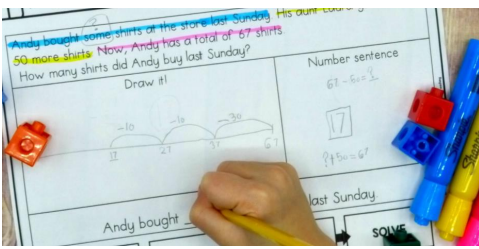 Andy bought some shirts at the store last Sunday. His aunt
50 more shirts. Now, Andy has a total of 67 shirts.
How many shirts did Andy buy last Sunday?
Draw it!
Number sentence
67 - 50 = ?
-10 -10 -30
17 27 37 67
17
? + 50 = 67
Andy bought
last Sunday
SOLVE
Sharpie